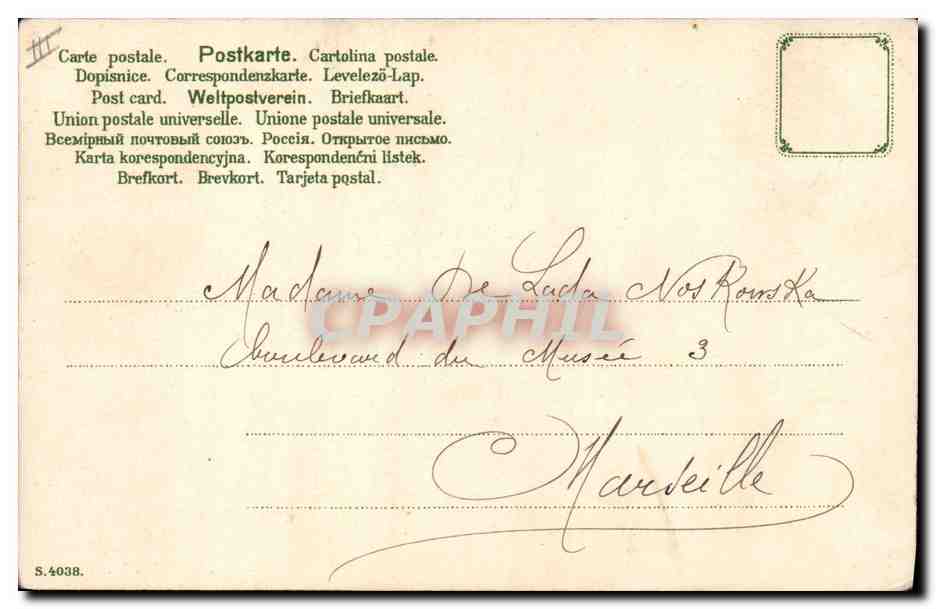 III
Carte postale. Postkarte. Cartolina postale.
Dopisnice. Correspondenzkarte. Levelező-Lap.
Post card. Weltpostverein. Briefkaart.
Union postale universelle. Unione postale universale.
Всемірный почтовый союзъ. Россія. Открытое письмо.
Karta korespondencyjna. Korespondenční listek.
Brefkort. Brevkort. Tarjeta postal.
Madame De Lada Noskowska
CPAPHIL
boulevard du Musée 3
Marseille
S.4038.